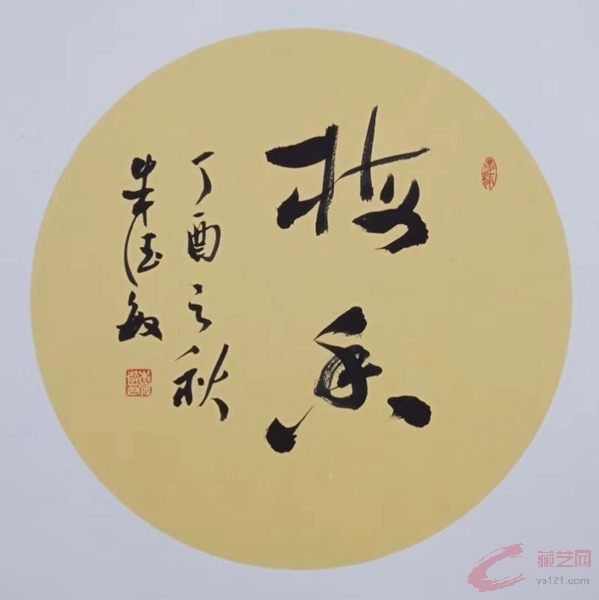 梅香
丁酉之秋
朱德敏
藏艺网
ya121.com